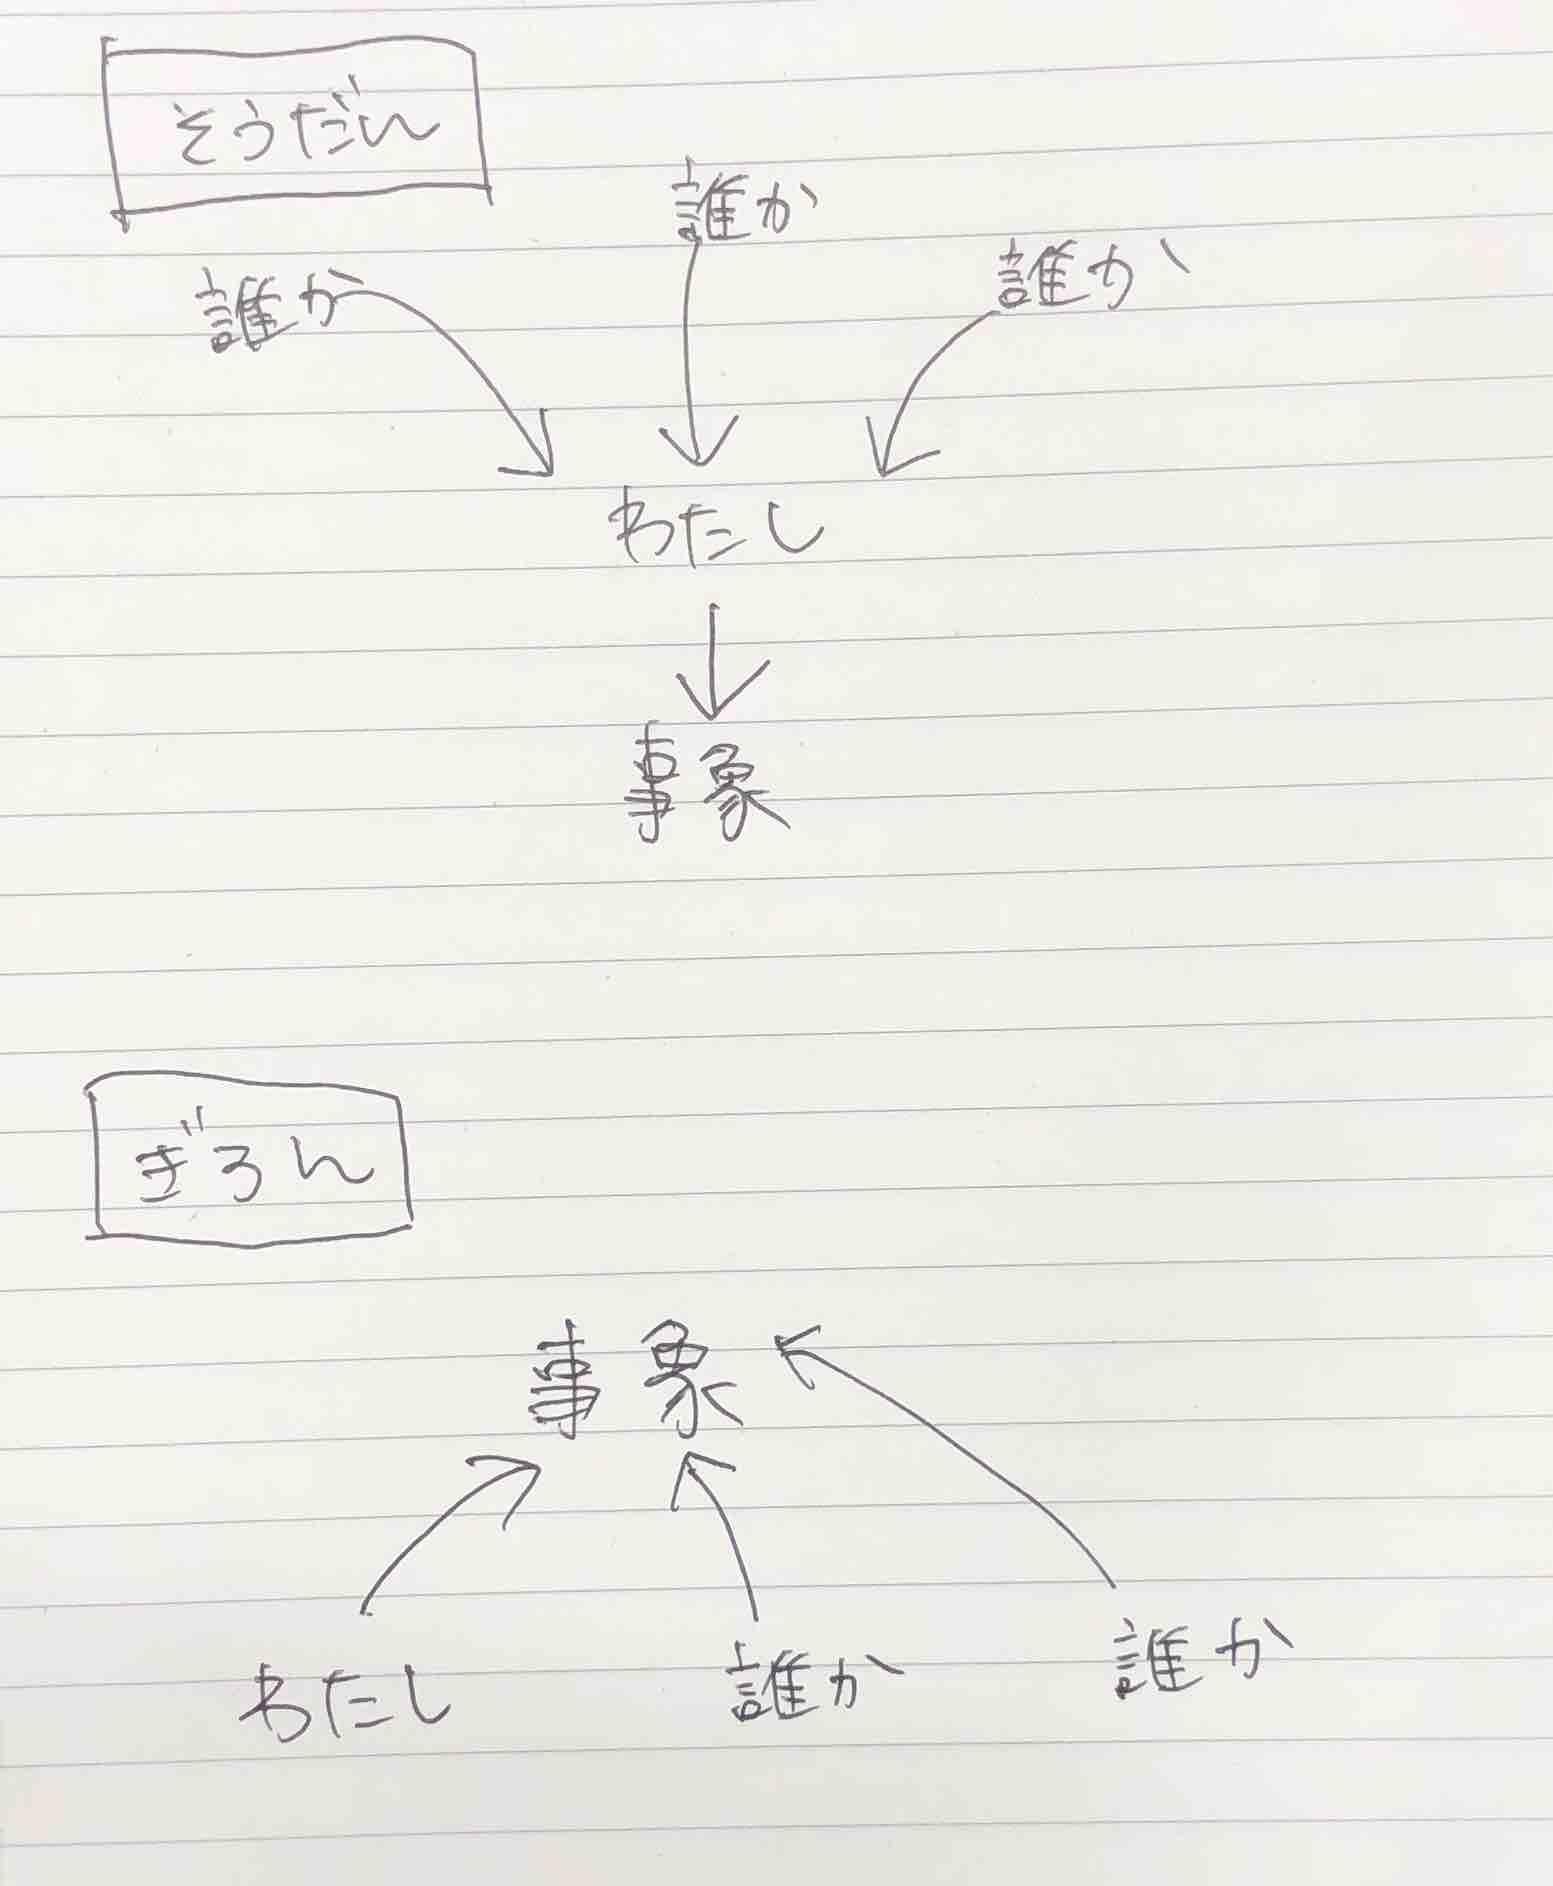 そうだん
誰か
誰か
誰か
わたし
事象
ぎろん
事象
わたし
誰か
誰か